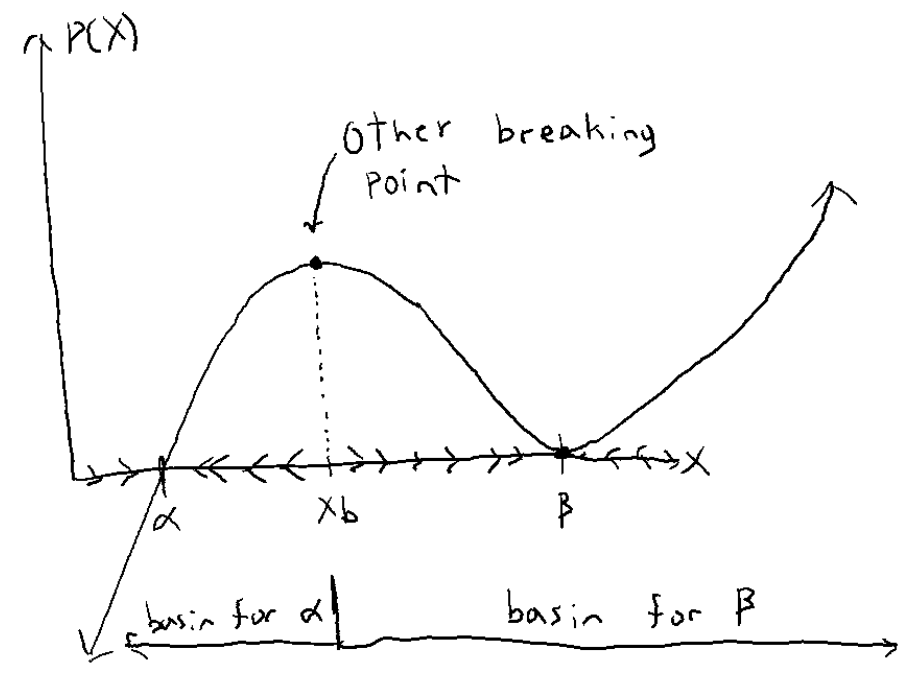 P(X)
Other breaking
point
X
α
Xb
β
basin for α
basin for β